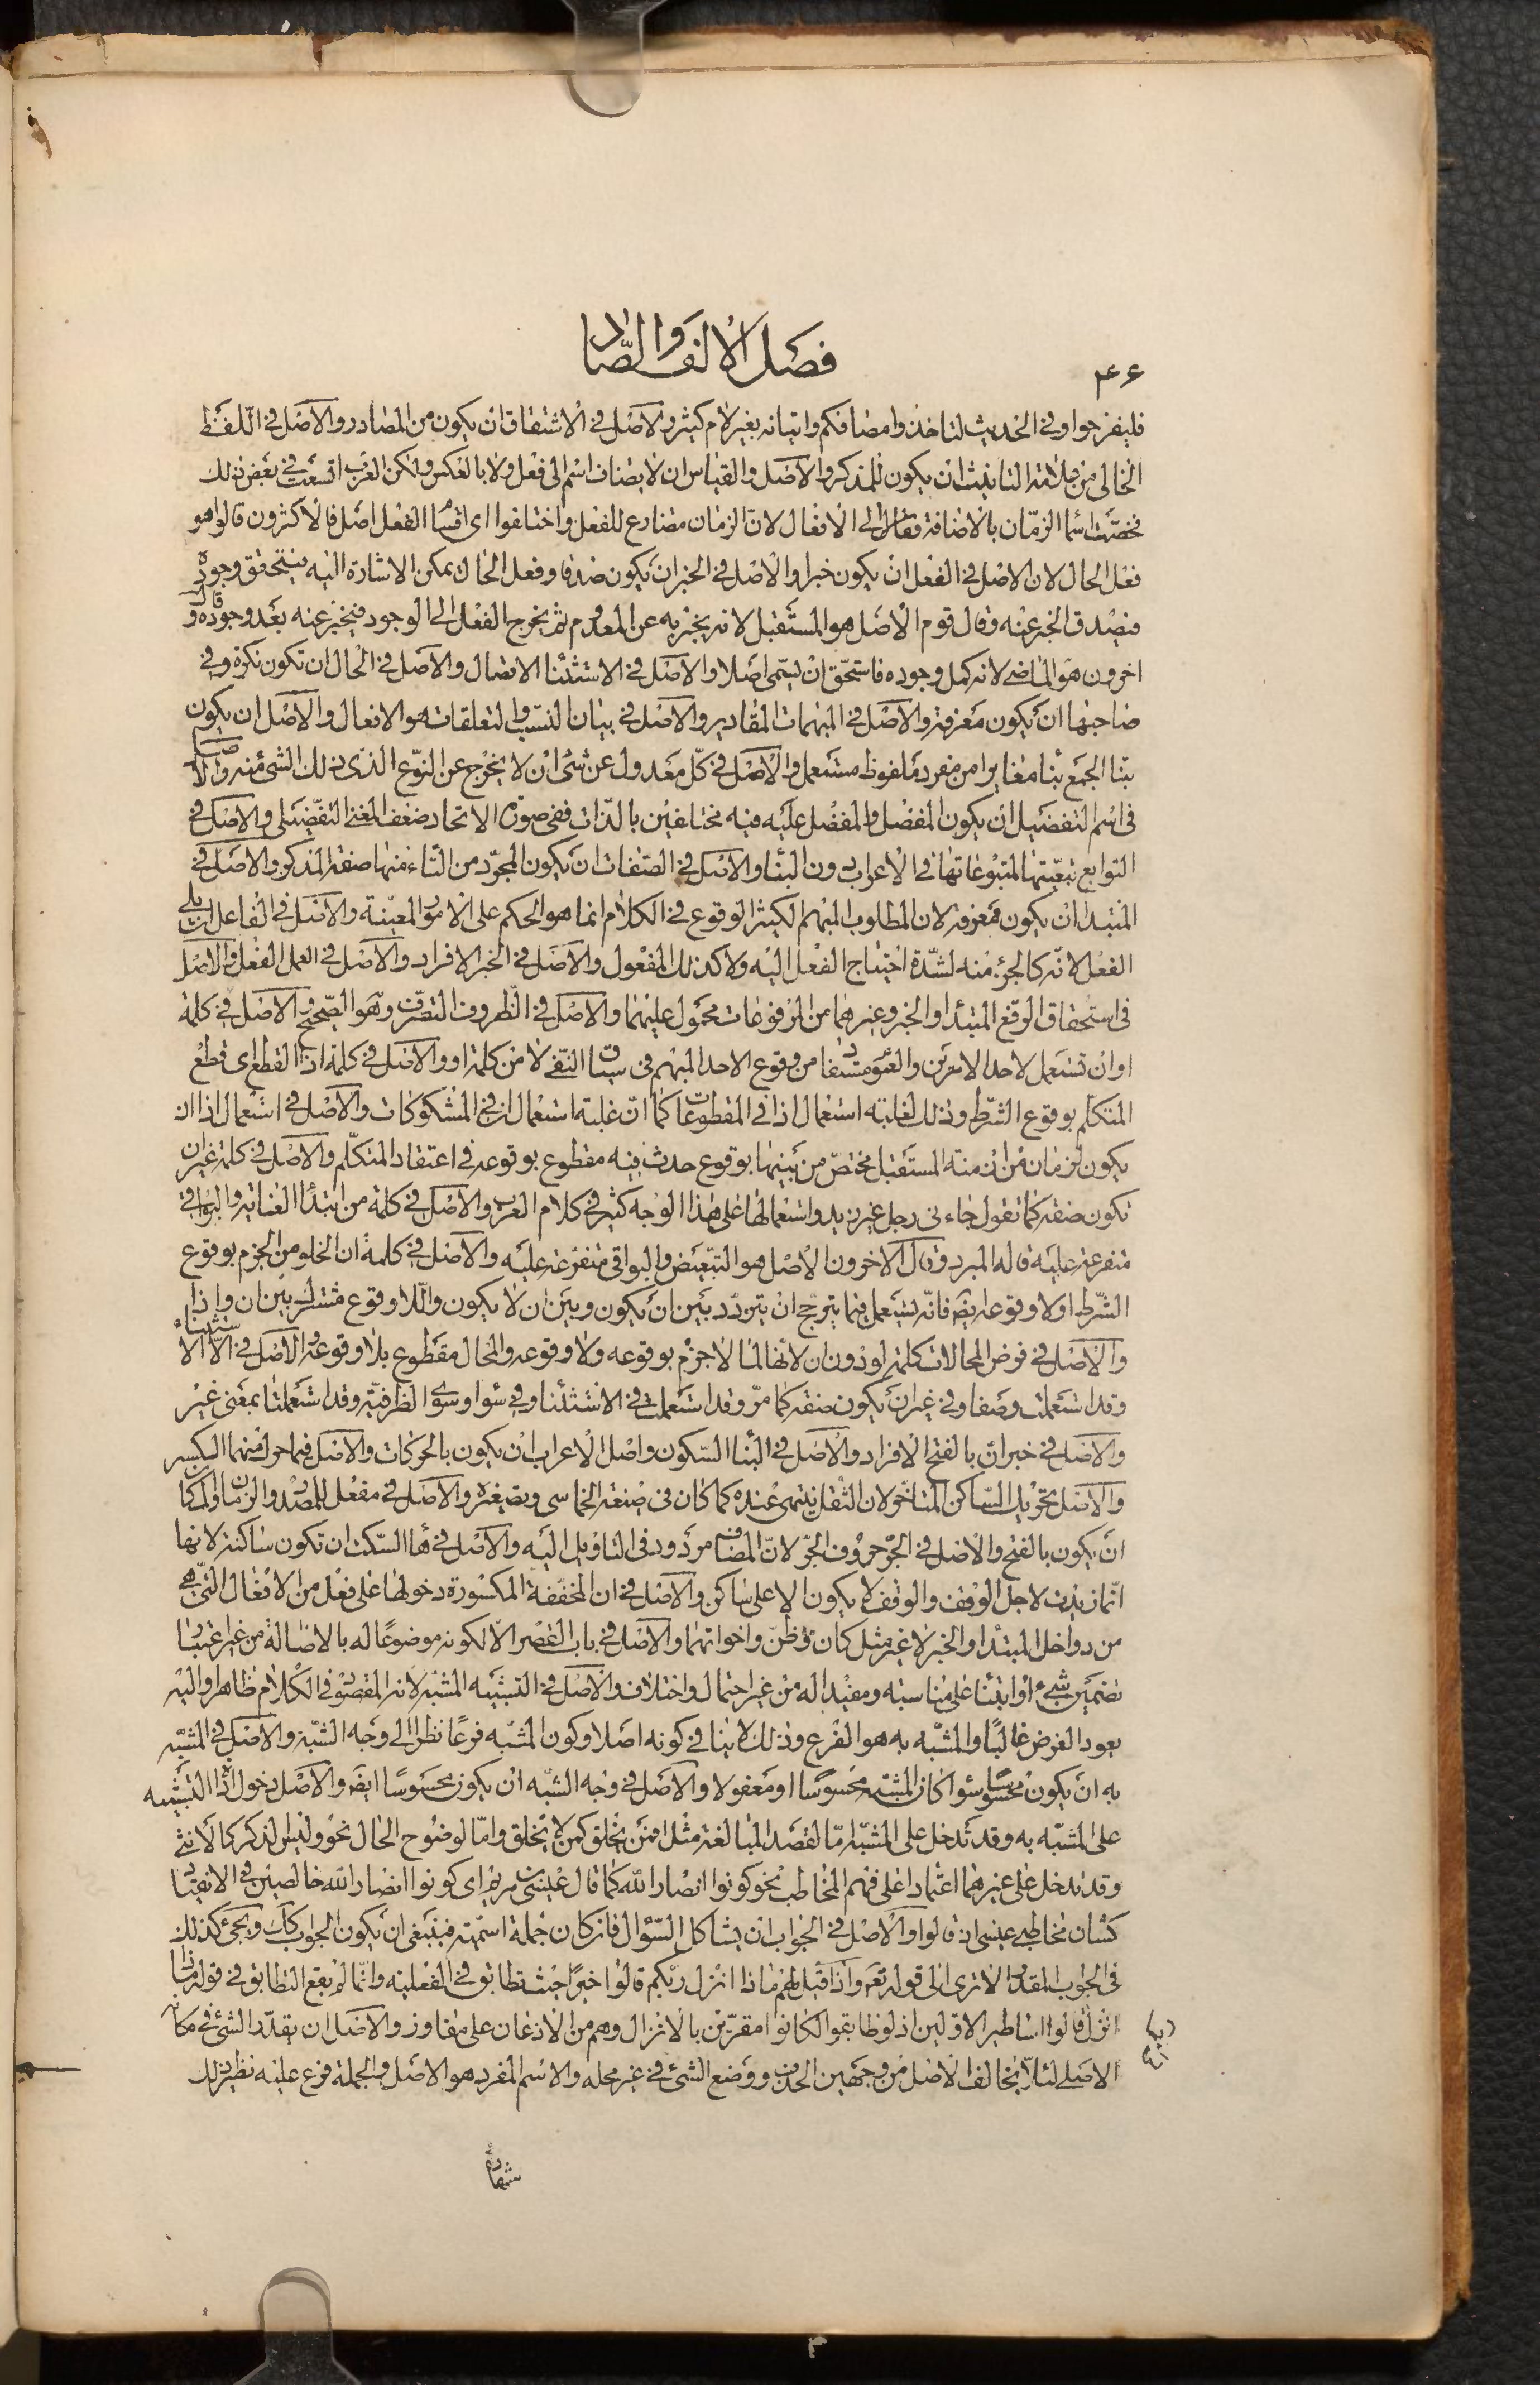 ٤٦
فصل الالف والصاد
فليفرحوا وفي الحديث لتاخذوا مصافكم واتيانه بغير لام كثير والاصل في الاشتقاق ان يكون من المصادر والاصل في اللفظ
الخالي من علامة التانيث ان يكون للمذكر والاصل والقياس ان لا يضاف اسم الى فعل ولا بالعكس ولكن العرب اتسعت في بعض ذلك
فخصت اسما الزمان بالاضافة الى الافعال لان الزمان مضارع للفعل واختلفوا اي اقسا الفعل اصل فالاكثرون قالوا هو
فعل الحال لان الاصل في الفعل ان يكون خبرا والاصل في الخبر ان يكون صدقا وفعل الحال يمكن الاشارة اليه فيتحقق وجوده
فيصدق الخبر عنه وقال قوم الاصل هو المستقبل لانه يخبر به عن المعدوم ثم يخرج الفعل الى الوجود فيخبر عنه بعد وجوده وقال
اخرون هو الماضي لانه كمل وجوده فاستحق ان يسمى اصلا والاصل في الاستثنا الاتصال والاصل في الحال ان تكون نكرة وفي
صاحبها ان يكون معرفة والاصل في المبهمات المقادير والاصل في بيان النسب والتعلقات هو الافعال والاصل ان يكون
بنا الجمع بنا مغايرا من مفرد ملفوظ مستعمل والاصل في كل معدول عن شئ ان لا يخرج عن النوع الذى ذلك الشئ منه والاصل
في اسم التفضيل ان يكون المفضل والمفضل عليه فيه مختلفين بالذات ففي صورة الاتحاد ضعف المعنى التفضيلي والاصل في
التوابع تبعيتها لمتبوعاتها في الاعراب دون البنا والاصل في الصفات ان يكون المجرد من التاء منها صفة المذكر والاصل في
المبتدا ان يكون معرفة لان المطلوب المهم الكثير الوقوع في الكلام انما هو الحكم على الامور المعينة والاصل في الفاعل ان يلي
الفعل لانه كالجزء منه لشدة احتياج الفعل اليه ولا كذلك المفعول والاصل في الخبر الافراد والاصل في العمل الفعل والاصل
في استحقاق الرفع المبتدا والخبر وغيرهما من المرفوعات محمول عليهما والاصل في الظروف التصرف وهو الصحيح والاصل في كلمة
او ان تستعمل لاحد الامرين والعموم مستفاد من وقوع الاحد المبهم في سياق النفي لا من كلمة او والاصل في كلمة اذا القطع اى قطع
المتكلم بوقوع الشرط وذلك لغلبة استعمال اذا في المقطوعات كما ان غلبة استعمال ان في المشكوكات والاصل في استعمال اذا ان
يكون لزمان من ازمنة المستقبل مختص من بينها بوقوع حدث فيه مقطوع بوقوعه في اعتقاد المتكلم والاصل في كلمة غير ان
تكون صفة كما تقول جاءنى رجل غير زيد واستعمالها على هذا الوجه كثير في كلام العرب والاصل في كلمة من ابتدأ الغاية والبواقي
متفرعة عليه قاله المبرد وقال الاخرون الاصل هو التبعيض والبواقى متفرعة عليه والاصل في كلمة ان الخلو من الجزم بوقوع
الشرط او لا وقوعه ايض فانه يستعمل فيما يترجح ان يتردد بين ان يكون وبين ان لا يكون واللا وقوع مشترك بين ان واذا
والاصل في فرض المحالات كلمة لو دون ان لانها لما لا جزم بوقوعه ولا وقوعه والمحال مقطوع بلا وقوعه والاصل في الا الاستثناء
وقد استعملت وصفا وفي غير ان يكون صفة كما مر وقد استعملت في الاستثنا وفي سوا وسوى الظرفية وقد استعملتا بمعنى غير
والاصل في خبر ان بالفتح الافراد والاصل في البنا السكون واصل الاعراب ان يكون بالحركات والاصل فيما حرك منهما الكسر
والاصل تحريك الساكن المتاخر لان الثقل ينتهى عنده كما كان في صنعة الخماسي وتصغيره والاصل في مفعل للمصدر والزمان والمكان
ان يكون بالفتح والاصل في الجر حروف الجر لان المضاف مردود في التاويل اليه والاصل في هاء السكت ان تكون ساكنة لانها
انما زيدت لاجل الوقف والوقف لا يكون الا على ساكن والاصل في ان المخففة المكسورة دخولها على فعل من الافعال التي هي
من دواخل المبتدا والخبر لا غير مثل كان وظن واخواتهما والاصل في باب القصر الا لكونه موضوعا له بالاصالة من غير اعتبار
تضمين شئ او ابتنا على مناسبة ومفيدا له من غير احتمال واختلاف والاصل في التشبيه المشبه لانه المقصود في الكلام ظاهرا واليه
يعود الغرض غالبا والمشبه به هو الفرع وذلك لا ينافي كونه اصلا وكون المشبه فرعا نظرا الى وجه الشبه والاصل في المشبه
به ان يكون محسوسا سوا كان المشبه محسوسا او معقولا والاصل في وجه الشبه ان يكون محسوسا ايض والاصل دخول اداة التشبيه
على المشبه به وقد تدخل على المشبه اما لقصد المبالغة مثل افمن يخلق كمن لا يخلق واما لوضوح الحال نحو وليس الذكر كالانثى
وقد تدخل على غيرهما اعتمادا على فهم المخاطب نحو كونوا انصار الله كما قال عيسى بن مريم اى كونوا انصار الله خالصين في الانقياد
كشان مخاطبي عيسى اذ قالوا والاصل في الجواب ان يشاكل السؤال فان كان جملة اسمية فينبغي ان يكون الجواب كك ويجئ كذلك
في الجواب المقدر الا ترى الى قوله تعه واذا قيل لهم ماذا انزل ربكم قالوا خيرا حيث تطابق في الفعلية وانما لم يقع التطابق في قوله ماذا
انزل ربكم قالوا اساطير الاولين اذ لو طابقوا لكانوا مقرين بالانزال وهم من الاذعان على مفاوز والاصل ان يقدر الشئ في مكانه
الاصلى لئلا يخالف الاصل من وجهين الحذف ووضع الشئ في غير محله والاسم المفرد هو الاصل والجملة فرع عليه نظير ذلك
شهادة